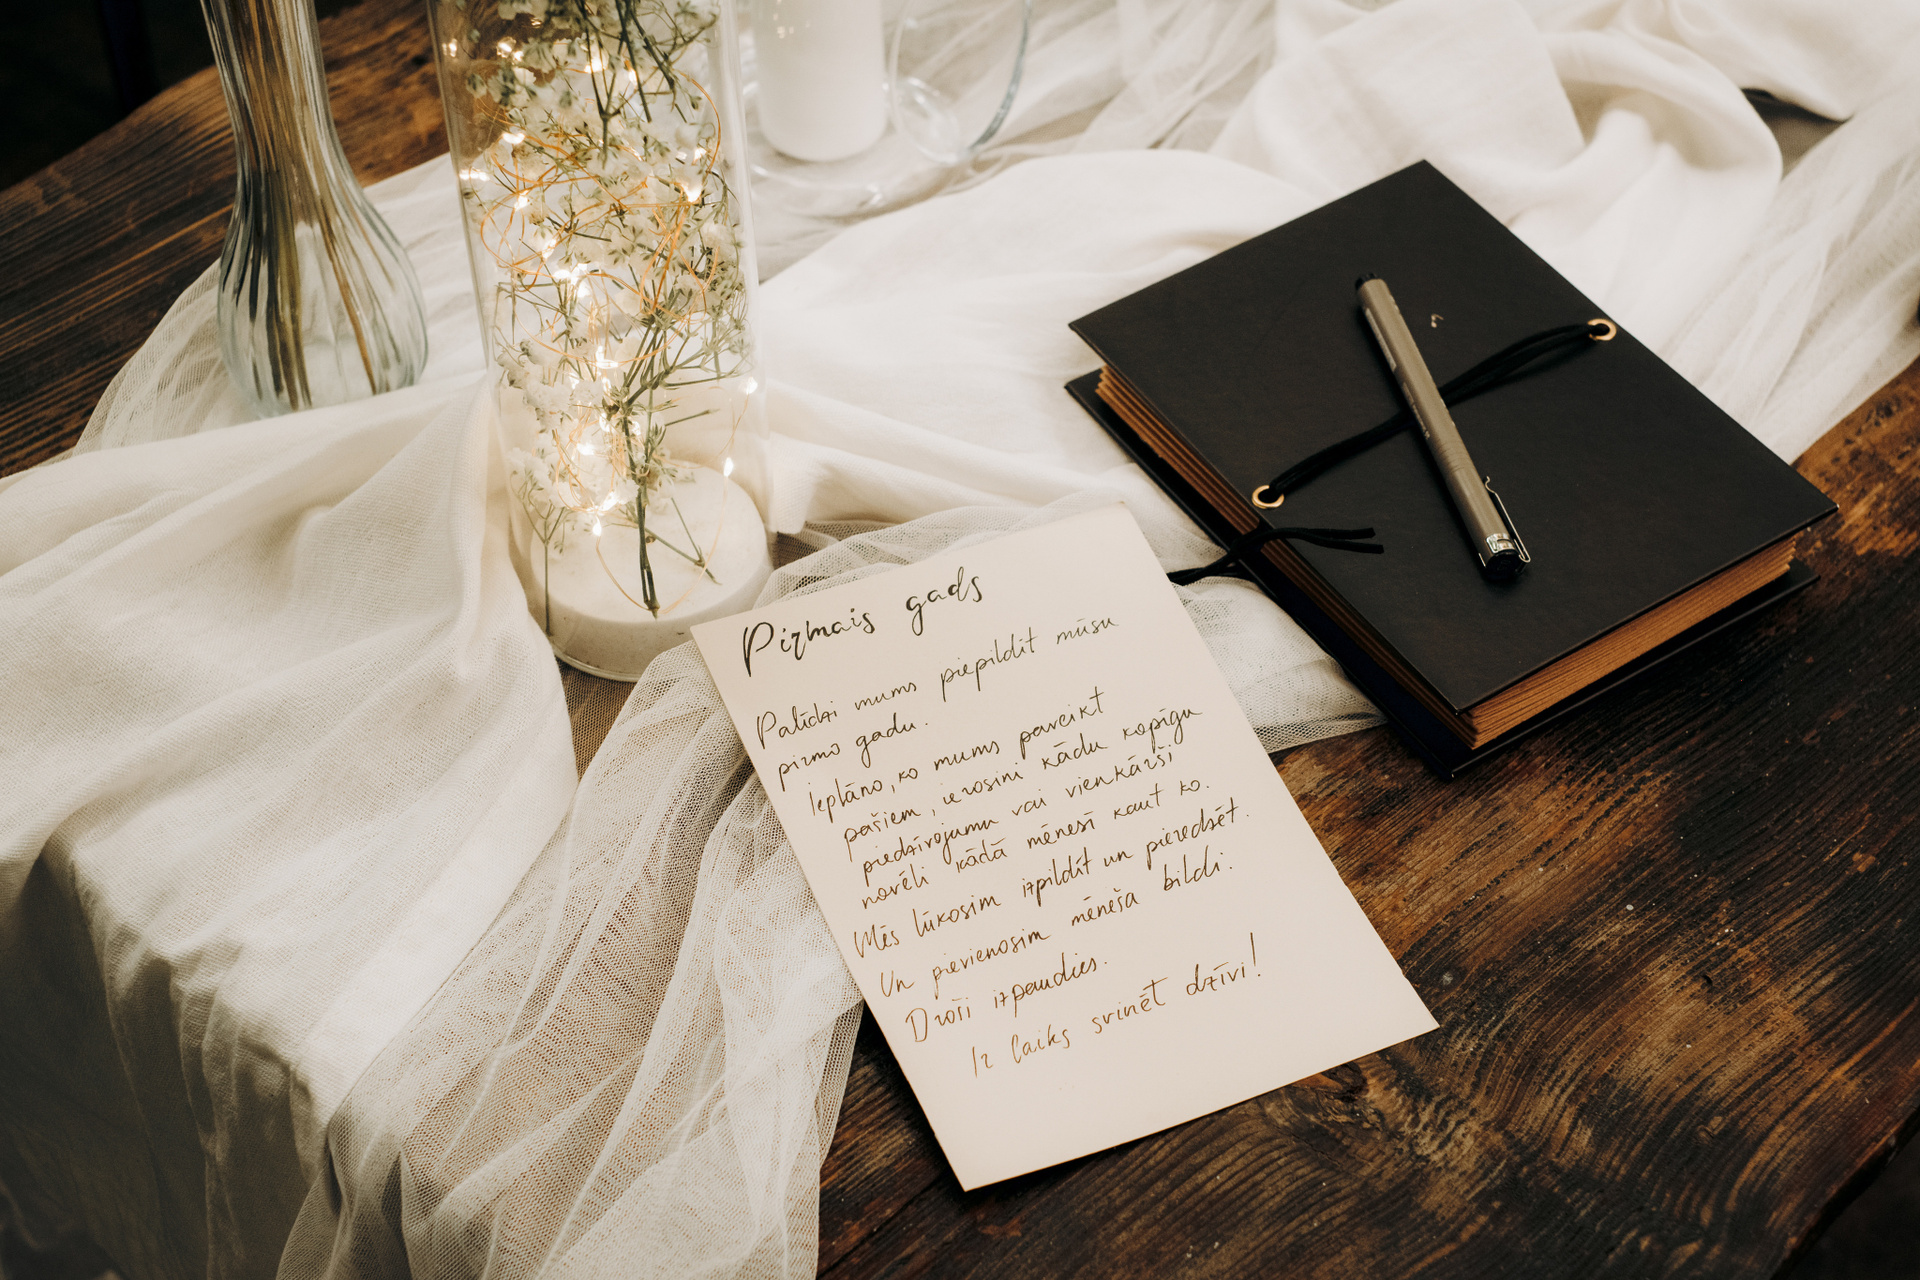 Pirmais gads
Palīdzi mums piepildīt mūsu
pirmo gadu.
Ieplāno, ko mums paveikt
pašiem, ierosini kādu kopīgu
piedzīvojumu vai vienkārši
novēli kādā mēnesī kaut ko.
Mēs lūkosim izpildīt un pieredzēt.
Un pievienosim mēneša bildi.
Droši izpaudies.
Ir laiks svinēt dzīvi!